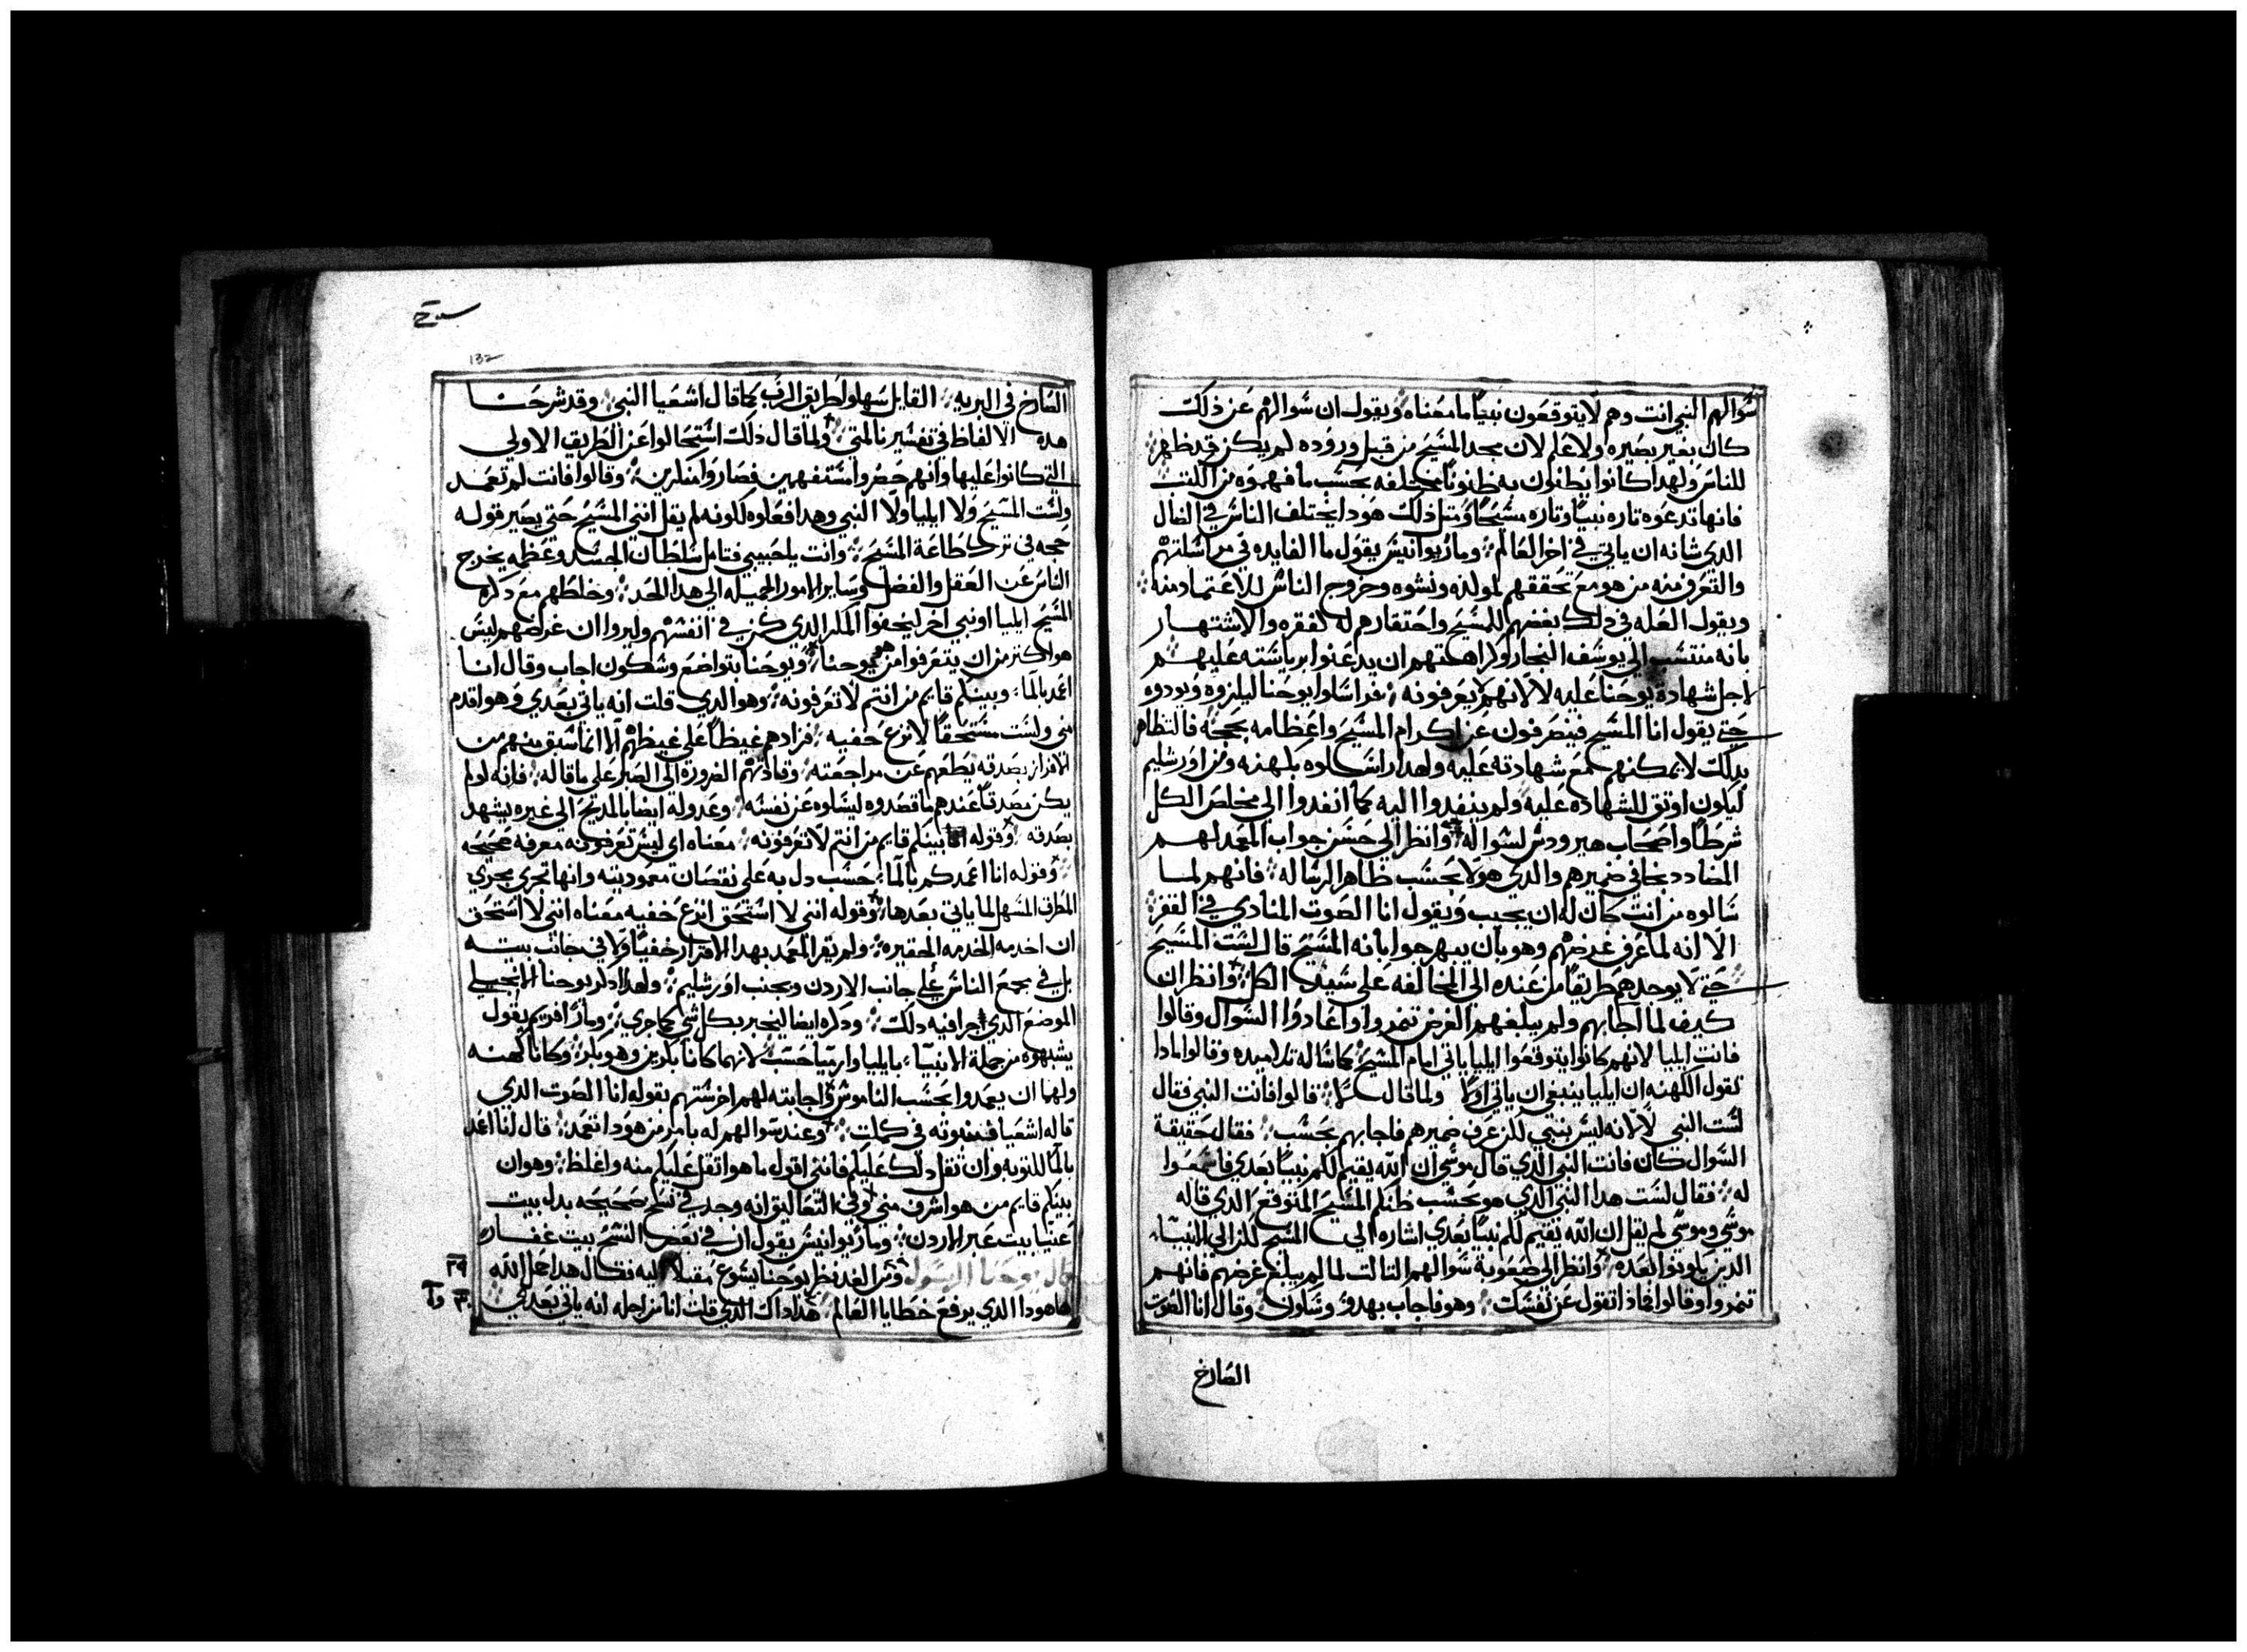 سوالهم النبي انت وهم لا يتوقعون نبيا ما معناه ويقول ان سوالهم عن ذلك
كان بغير بصيره ولا علم لان مجد المسيح من قبل وروده لم يكن قد ظهر
للناس ولهدا كانوا يظنون به ظنونا مختلفه بحسب ما فهموه من الكتب
فانها تدعوه تاره نبيا وتاره مسيحا ومتل ذلك هودا يختلف الناس في الضال
الدي شانه ان ياتي في اخر العالم وماريوانيس يقول ما الفايده في مراسلتهم
والتعرف منه من هو مع تحققهم لمولده ونشوه وخروج الناس للاعتماد منه
ويقول العله في دلك بغضهم للمسيح واحتقارهم له لفقره والاشتهار
بانه منتسب الي يوسف النجار وكراهتهم ان يدعنوا برياسته عليهم
لاجل شهادة يوحنا عليه لا لانهم لا يعرفونه فراسلوا يوحنا ليلزوه ويودوه
حتي يقول انا المسيح فينصرفون عن اكرام المسيح واعظامه بحجه فالتظاهر
بدلك لا يمكنهم مع شهادته عليه ولهدا راسلوه بكهنه ومن اورشليم
ليكون اوتق للشهاده عليه ولم ينفدوا اليه كما انفدوا الي مخلص الكل
شرطا واصحاب هيرودس لسواله وانظر الي حسن جواب المعمد لهم
المضادد بما في ضميرهم والدي هو لا بحسب ظاهر الرساله فانهم لما
سالوه من انت كان له ان يجيب ويقول انا الصوت المنادي في القفر
الا انه لما عرف غرضهم وهو بان يبهرجوا بانه المسيح قال لست المسيح
حتي لا يوجدهم طريقا من عنده الي المخالفه علي سيد الكل وانظر ان
كيف لما اجابهم ولم يبلغهم الغرض تنمروا واعادوا السوال وقالوا
فانت ايليا لانهم كانوا يتوقعوا ايليا ياتي ايام المسيح كما ساله تلاميده وقالوا لمادا
تقول الكهنه ان ايليا ينبغي ان ياتي اولا ولما قال لا قالوا افانت النبي فقال
لست النبي لا لانه ليس بنبي لكن عرف ضميرهم فاجابهم بحسب فقال حقيقة
السوال كان فانت النبي الدي قال موسي ان الله يقيم لكم نبيا بعدي فاسمعوا
له فقال لست هدا النبي الدي هو بحسب ظنكم المسيح المتوقع الدي قاله
موسي وموسي لم يقل ان الله يقيم لكم نبيا بعدي اشاره الي المسيح لكن الي الانبياء
الدين ياتون بعده وانظر الي صعوبة سوالهم التالت لما لم يبلغ غرضهم فانهم
تنمروا وقالوا فماذا تقول عن نفسك وهو فاجاب بهدو وسكون وقال انا الصوت
الصارخ
132
الصارخ في البريه القايل سهلوا طريق الرب كما قال اشعيا النبي وقد شرحنا
هده الالفاظ في تفسيرنا لمتي ولما قال ذلك استحالوا عن الطريق الاولي
التي كانوا عليها وانهم حضروا مستفهمين فصاروا منكرين وقالوا فانت لم تعمد
ولست المسيح ولا ايليا ولا النبي وهدا فعلوه لكونه لم يقل انني المسيح حتي يصير قوله
حجه في ترك طاعة المسيح وانت يا حبيبي فتامل سلطان الحسد وعظمه يخرج
الناس عن العقل والفضل وساير الامور الجميله الي هدا الحد وخلطهم مع دكره
المسيح ايليا او نبي اخر ليخفوا المكر الدي كمن في انفسهم وليروا ان غرضهم ليس
هو اكتر من ان يتعرفوا من هو يوحنا ويوحنا بتواضع وسكون اجاب وقال انا
اعمد بالماء وبينكم قايم من انتم لا تعرفونه وهو الدي قلت انه ياتي بعدي وهو اقدم
مني ولست مستحقا لانزع خفيه فزادهم غيظا علي غيظهم الا انما سبق منهم من
الاقرار بصدقه يقطعهم عن مراجعته وقادتهم الضرورة الي الصبر علي ما قاله فانه لو لم
يكن مصدقا عندهم ما قصدوه ليسالوه عن نفسه وعدوله ايضا بالمديح الي غيره يشهد
بصدقه وقوله بينكم قايم من انتم لا تعرفونه معناه اي ليس تعرفونه معرفه صحيحه
وقوله انا اعمدكم بالماء حسب دل به علي نقصان معموديته وانها تجري مجري
المطرق المسهل لما ياتي بعدها وقوله انني لا استحق انزع خفيه معناه انني لا استحق
ان اخدمه الخدمه الحقيره ولم يقر المعمد بهدا الاقرار خفيا ولا في جانب بيته
بل في مجمع الناس علي جانب الاردن وبجنب اورشليم ولهدا دكر يوحنا الانجيلي
الموضع الدي جرا فيه دلك ودكره ايضا ليخبر بكل شي كما جري ومار افريم يقول
يشبهوه من جملة الانبياء بايليا وارميا حسب لانهما كانا بكرين وهو بكر وكانا كهنه
ولهما ان يعمدوا بحسب الناموس واجابته لهم اخرستهم بقوله انا الصوت الدي
قاله اشعيا في كملت وعند سوالهم له بامر من هودا تعمد قال لنا اعمد
بالماء للتوبه وان تقل دلك عليكم فانني اقول ما هو اتقل عليكم منه واغلظ وهو ان
بينكم قايم من هو اشرف مني وفي التعاليق انه وجد في نسخ صحيحه بدل بيت
عنيا بيت عبر الاردن وماريوانيس يقول ان في بعض النسخ بيت عفاره
قال يوحنا الرسول ومن الغد نظر يوحنا يسوع مقبلا اليه فقال هدا حمل الله
هاهودا الدي يرفع خطايا العالم هدا داك الدي قلت انا من اجله انه ياتي بعدي